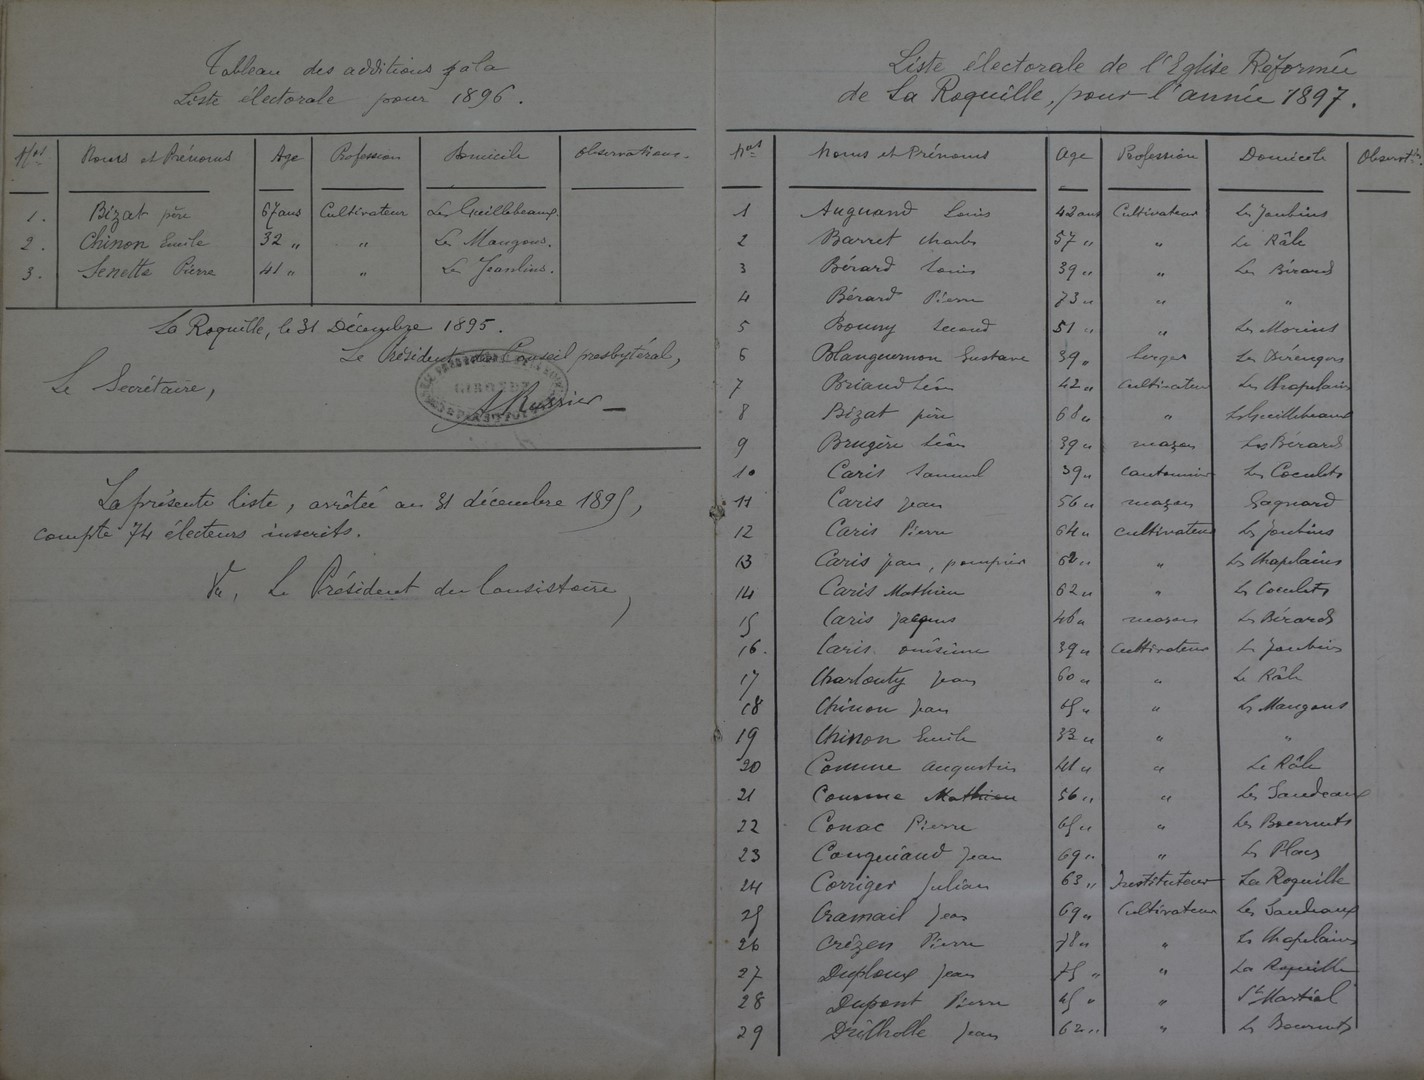 Tableau des additions à la
Liste électorale pour 1896.
Nos Noms et Prénoms Age Profession Domicile Observations.
1. Bizat père 67 ans Cultivateur Les Guillebeaux.
2. Chinon Emile 32 " " Les Mangons.
3. Senette Pierre 41 " " Les Jeanlins.
La Roquille, le 31 Décembre 1895.
Le Président du Conseil presbytéral,
Le Secrétaire,
La présente liste, arrêtée au 31 décembre 1895,
compte 74 électeurs inscrits.
Vu, Le Président du Consistoire,
Liste électorale de l'Eglise Réformée
de La Roquille, pour l'année 1897.
Nos Noms et Prénoms Age Profession Domicile Observt.
1 Auguand Louis 42 ans Cultivateur Les Joubins
2 Barret Charles 57 " " Le Râle
3 Bérard Louis 39 " " Les Bérards
4 Bérard Pierre 73 " " "
5 Bonny Second 51 " " Les Morins
6 Blanquernon Gustave 39 " berger Les Bérengers
7 Briaud Léon 42 " Cultivateur Les Chapelains
8 Bizat père 68 " " Les Guillebeaux
9 Brugère Léon 39 " maçon Les Bérards
10 Caris Samuel 39 " cantonnier Les Coculets
11 Caris Jean 56 " maçon Gagnard
12 Caris Pierre 64 " cultivateur Les Joubins
13 Caris Jean, pompier 62 " " Les Chapelains
14 Caris Mathieu 62 " " Les Coculets
15 Caris Jacques 46 " maçon Les Bérards
16. Caris Onésime 39 " Cultivateur Les Joubins
17 Charlouty Jean 60 " " Le Râle
18 Chinon Jean 65 " " Les Mangons
19 Chinon Emile 33 " " "
20 Comme Augustin 41 " " Le Râle
21 Comme Mathieu 56 " " Les Gandeaux
22 Conac Pierre 65 " " Les Bournets
23 Conquéand Jean 69 " " Les Places
24 Corriger Julien 63 " Instituteur La Roquille
25 Cramail Jean 69 " Cultivateur Les Gandeaux
26 Crézen Pierre 78 " " Les Chapelains
27 Duploux Jean 75 " " La Roquille
28 Dupont Pierre 45 " " St Martial
29 Drilholle Jean 62 " " Les Bournets